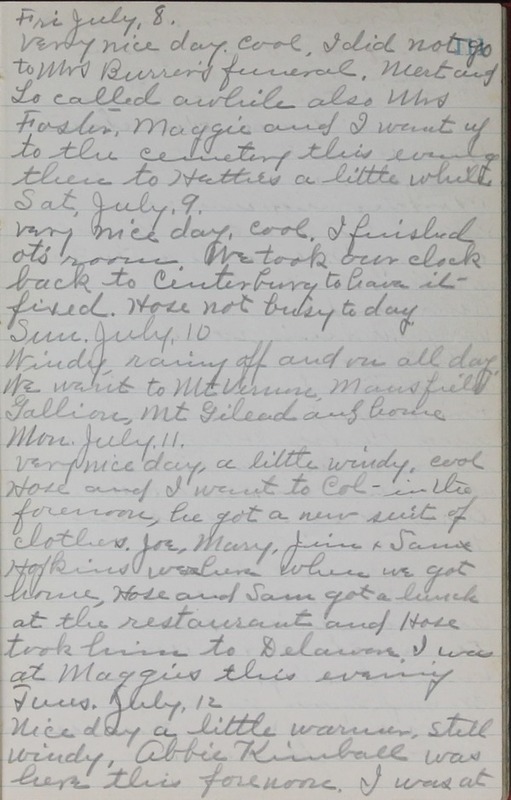 Fri July, 8.
very nice day. cool, I did not go
to Mrs Burrer's funeral, Mert and
Lo called awhile also Mrs
Foster, Maggie and I went up
to the cemetery this evening
then to Hatties a little while
Sat, July, 9.
very nice day, cool, I finished
ot's room We took our clock
back to Centerburg to have it
fixed. Hose not busy to day
Sun. July, 10
Windy, rainy off and on all day,
We went to Mt Vernon, Mansfield
Gallion, Mt Gilead and home
Mon. July, 11.
very nice day, a little windy, cool
Hose and I went to Col - in the
forenoon, he got a new suit of
clothes. Joe, Mary, Jim + Sam
Hofkins were here when we got
home, Hose and Sam got a lunch
at the restaurant and Hose
took him to Delaware I was
at Maggies this evening
Tues. July, 12
Nice day a little warmer, still
windy, Abbie Kimball was
here this forenoon. I was at